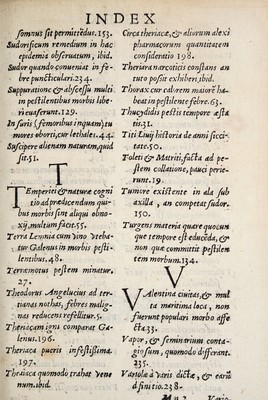 INDEX
somnus sit permittẽdus. 153.
Sudorificum remedium in hac
epidemia obseruatum, ibid.
Sudor quando conueniat in fe-
bre puncticulari. 234.
Suppuratione & abscessu multi
in pestilentibus morbis libe-
ri euaserunt. 129.
In suris (, femoribus inquam) tu
mores aborti, cur lethales. 44.
Suscipere alienam naturam, quid
sit. 51.
T
TEmperiei & naturæ cogni
tio ad præcauendum
bus morbis sine aliquo obno-
xij, multum facit. 55.
Terra Lemnia cum vino
tur Galenus in morbis pesti-
lentibus. 48.
Terræmotus pestem minatur.
27.
Theodorus Angelucius ad ter-
tianas nothas, febres malig-
nas reducens refellitur. 5.
Theriacam igni comparat Ga-
lenus. 196.
Theriaca pueris infestissima.
197.
Theriaca quomodo trahat vene
num. ibid.
Circa theriacã, & aliorum alexi
pharmacorum quantitatem
consideratio 198.
Theriaca narcoticis constans an
tuto possit exhiberi, ibid.
Thorax cur calorem maiorẽ ha-
beat in pestilente febre. 63.
Thucydidis pestis tempore æsta
tis. 31.
Titi Liuij historia de anni sicci-
tate. 50.
Toleti & Matriti, facta ad pe-
stem collatione, pauci perie-
runt. 19.
Tumore existente in ala sub
axilla, an competat sudor.
150.
Turgens materia quare quocun
que tempore est educẽda, &
non quæ committit pestilen
tem morbum. 134.
V
VAlentina ciuitas, & mul
ta maritima loca, non
fuerunt populari morbo affe
cta 33.
Vapor, & seminarium conta-
giosum, quomodo differant.
235.
Variolæ à varis dictæ, & earũ
definitio. 238.
Mn 2